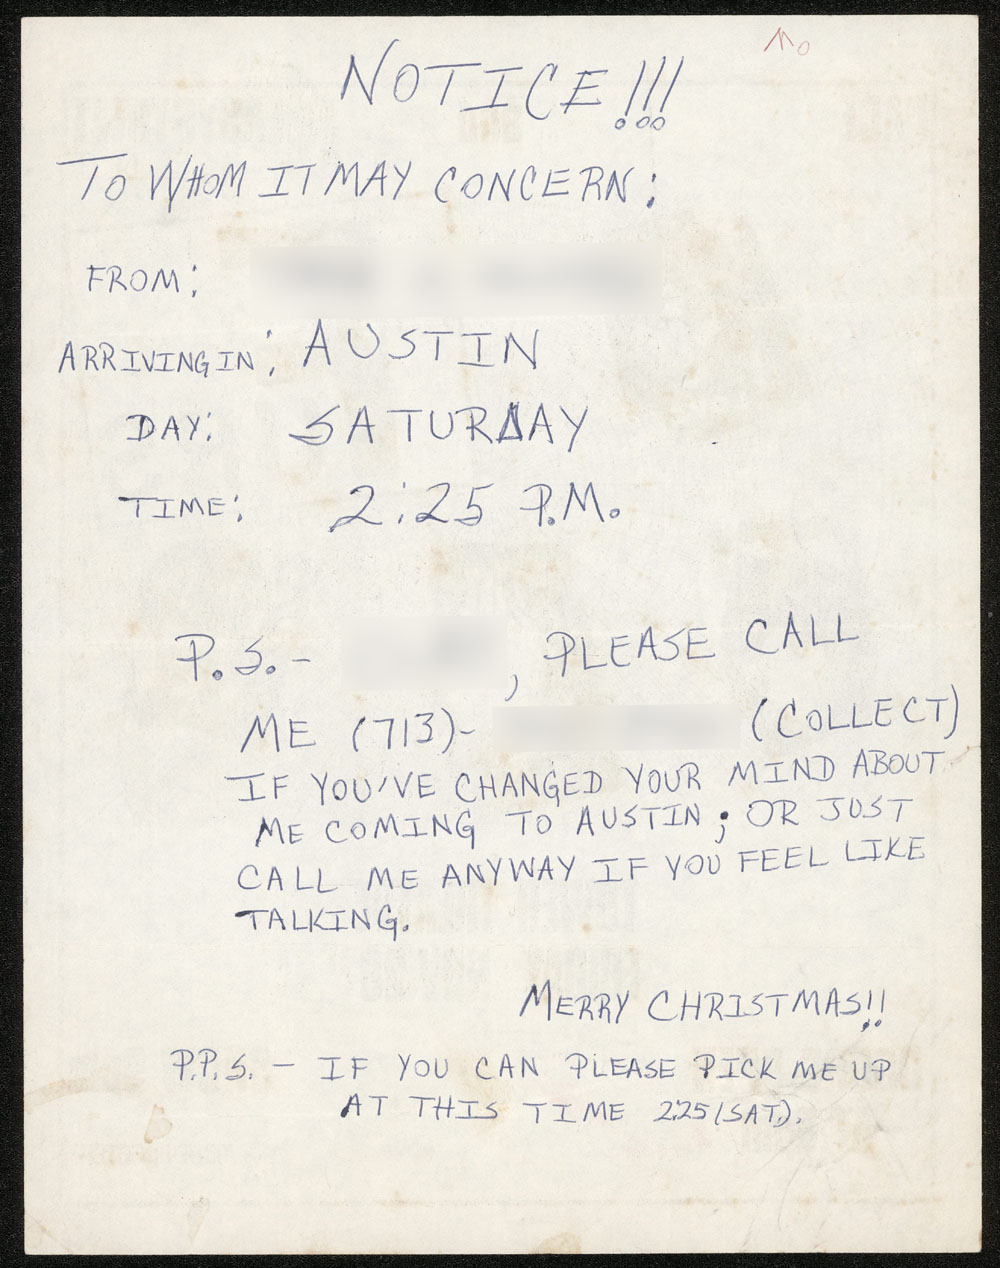 NOTICE!!!
TO WHOM IT MAY CONCERN:
FROM:
ARRIVING IN: AUSTIN
DAY: SATURDAY
TIME: 2:25 P.M.
P.S.- , PLEASE CALL
ME (713)- (COLLECT)
IF YOU'VE CHANGED YOUR MIND ABOUT
ME COMING TO AUSTIN; OR JUST
CALL ME ANYWAY IF YOU FEEL LIKE
TALKING.
MERRY CHRISTMAS!!
P.P.S. - IF YOU CAN PLEASE PICK ME UP
AT THIS TIME 2:25 (SAT.).